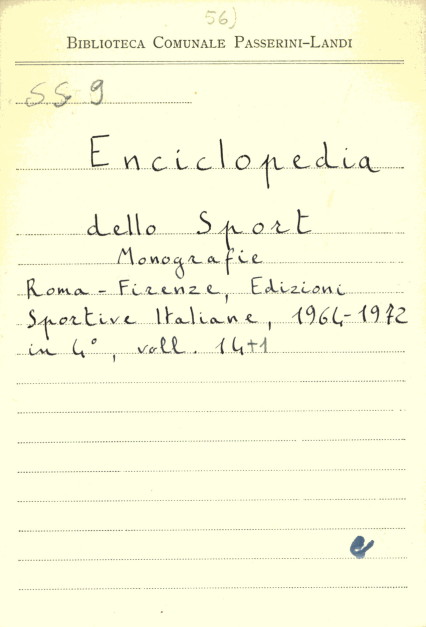 56)
BIBLIOTECA COMUNALE PASSERINI-LANDI
SS 9
Enciclopedia
dello Sport
Monografie
Roma - Firenze, Edizioni
Sportive Italiane, 1964-1972
in 4°, voll. 14+1